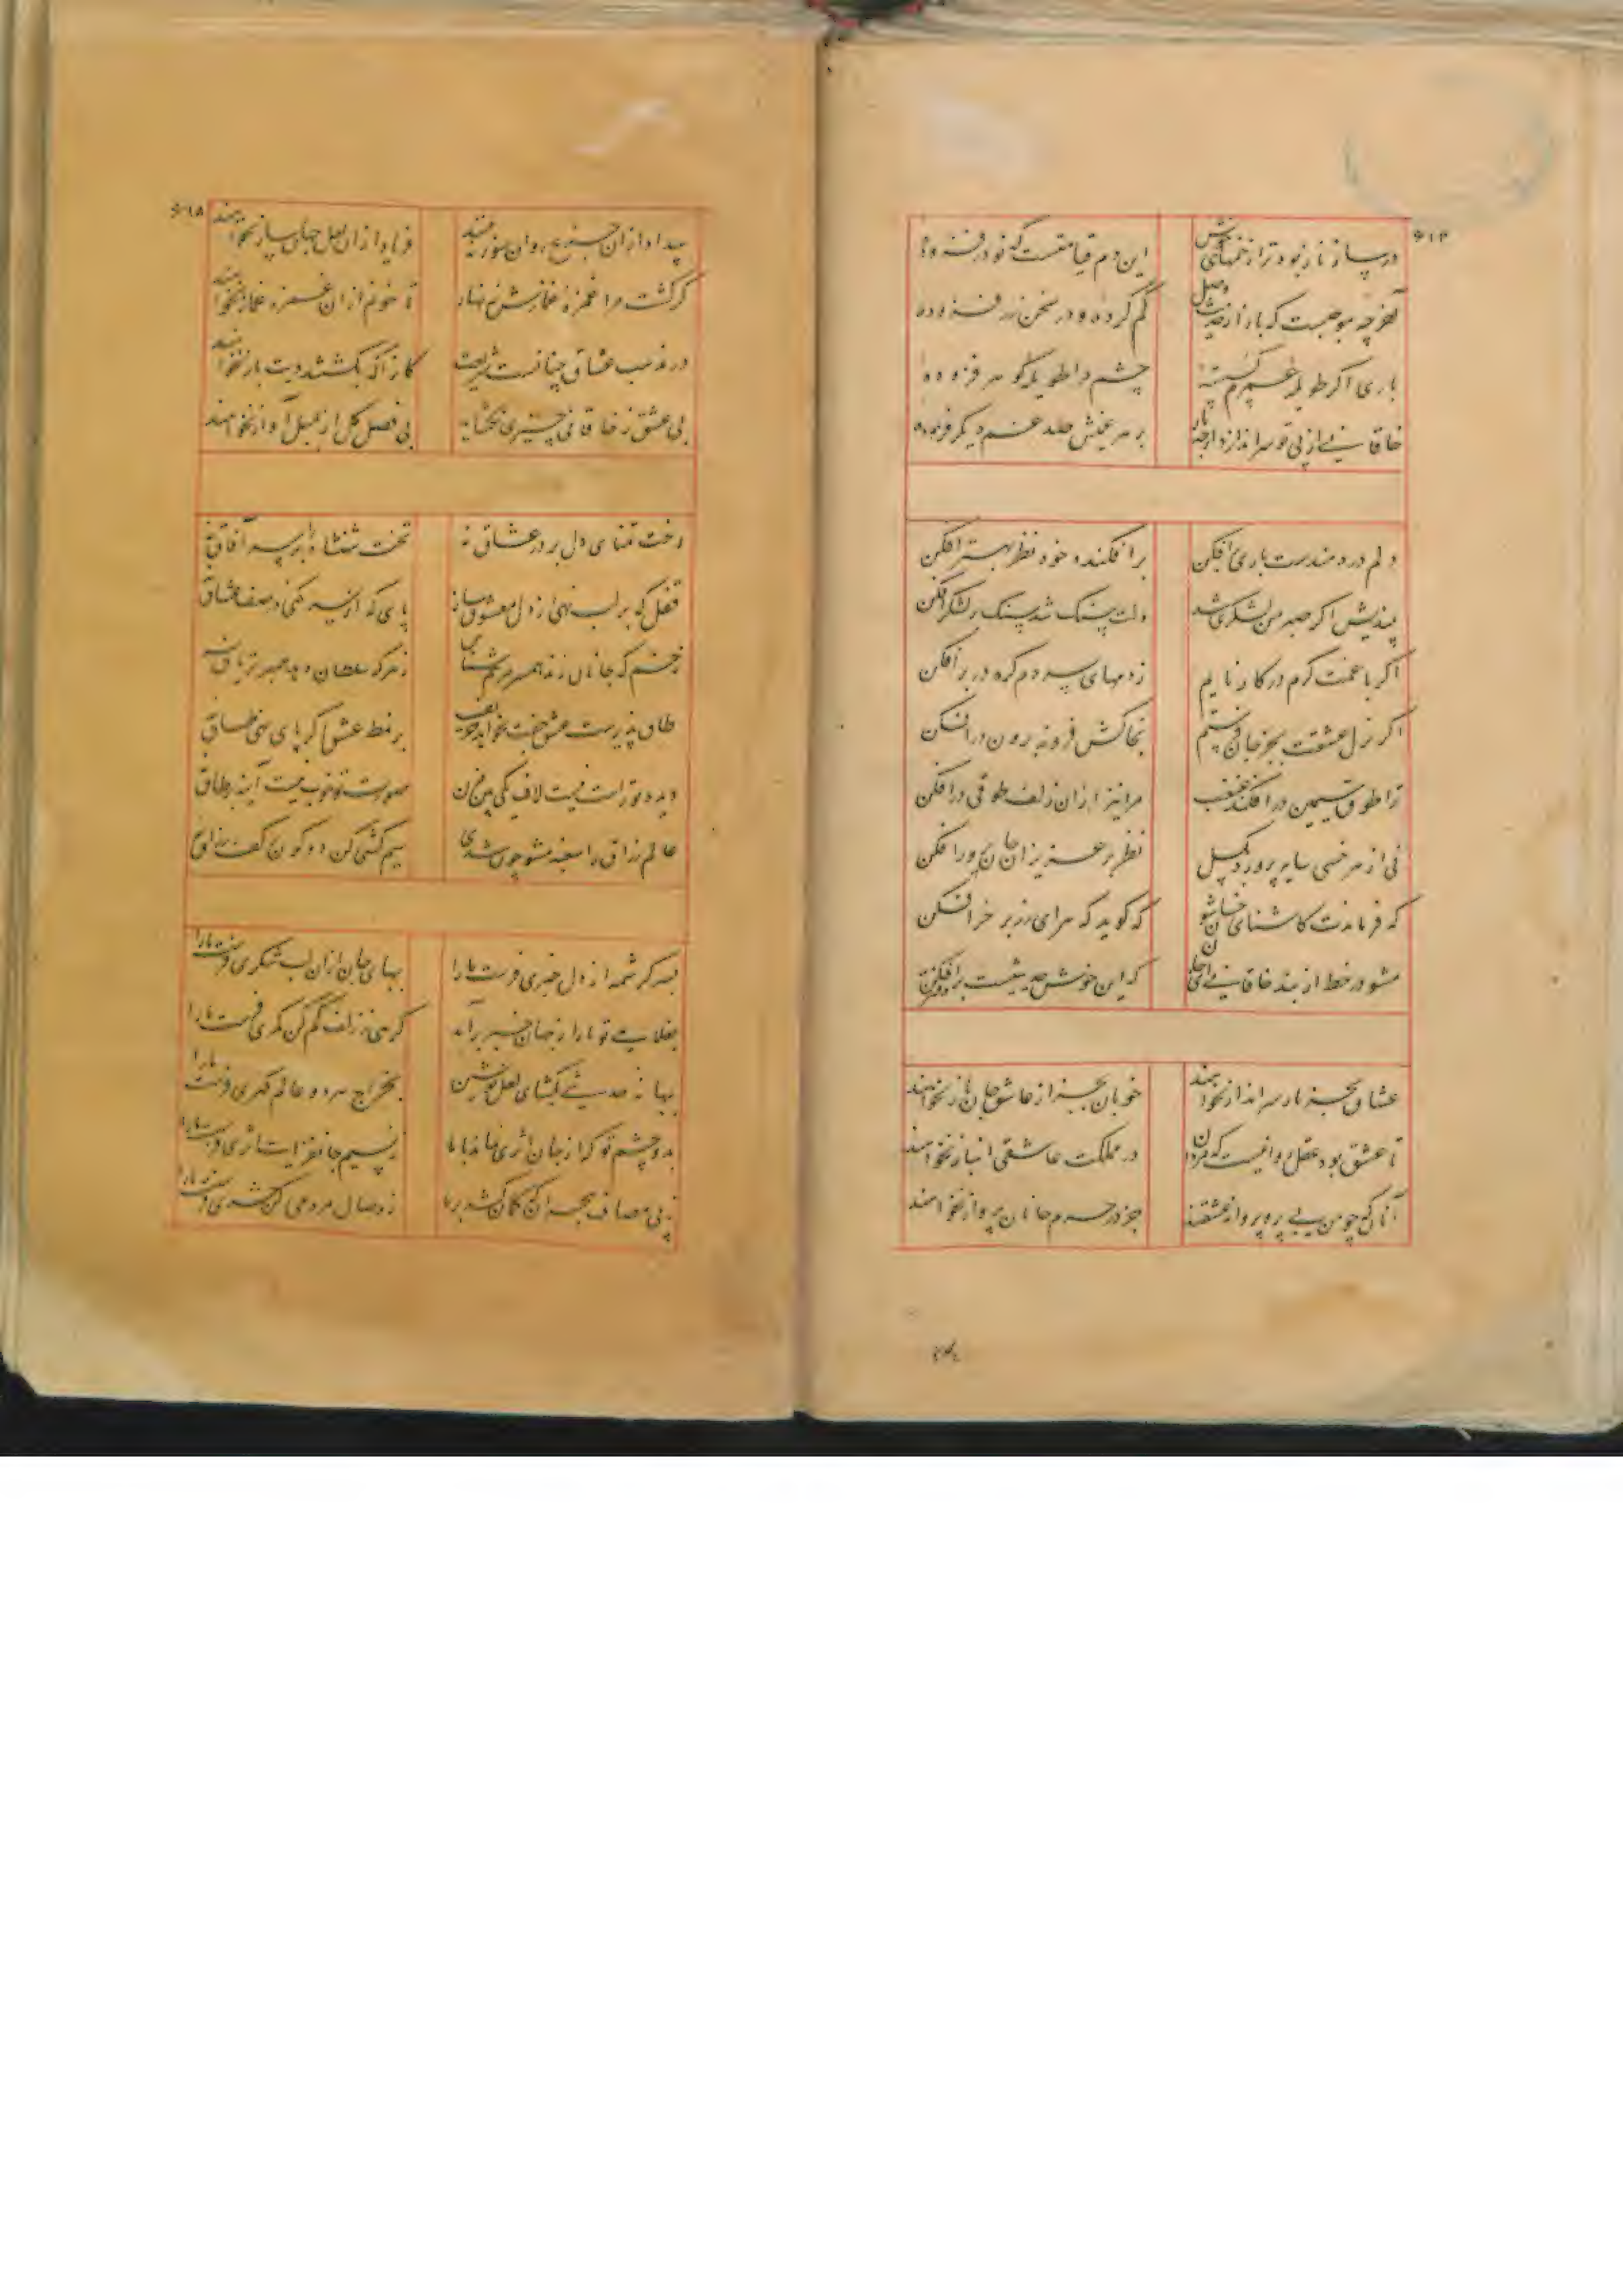 ۶۱۴
در ساز ناز بود ترا نغمهای خوش
این دم قیامتست که نو در فزوده
آخر چه موجبست که باز از حدیث وصل
کم کرده و در سخن زر فزوده
باری اگر طویله عمرم گسسته
چشم مرا طویله گوهر فزوده
خاقانی از پی تو سر اندازد ارچه باز
بر هر غمیش صد غم دیگر فزوده
دلم دردمندست باری برافکن
بر افکنده خود نظر بهتر افکن
میندیش اگر صبر من لشکری شد
دلت سنگ شد سنگ بر لشکر افکن
اگر با غمت گرم در کار نایم
ز دمهای سردم گره در بر افکن
اگر نزل عشقت بجز جان فرستم
بخاکش فرو نه برون در افکن
ترا طوق سیمین درافکند غبغب
مرا نیز از آن زلف طوقی درافکن
نی از هر خسی سایه پرورد
نظر بر عزیزان جان پرور افکن
که فرماندت کاشنای خسان شو
که گوید که هرای زر بر خر افکن
مشو در خط از پند خاقانی ای جان
که این خوش حدیثیست بر دفتر افکن
عشاق بجز یار سرانداز نخواهند
خوبان بجز از عاشق جانباز نخواهند
تا عشق بود عقل روا نیست که مردان
در مملکت عاشقی انباز نخواهند
آنان که چو من بی پر و پرواز عشقند
جز در حرم جانان پرواز نخواهند
۶۱۵
بیداد از آن جزع روان سوز نبینند
فریاد از آن لعل جهان ساز نخواهند
گر کشت مرا غمزه غمازش زنهار
تا خونم از آن غمزه غماز نخواهند
در مذهب عشاق چنانست شریعت
کانرا که بکشتند دیت باز نخواهند
بی عشق ز خاقانی چیزی نگشاید
بی فصل گل از بلبل آواز نخواهند
رخت تمنای دل بر در عشاق نه
تخت شهنشاه را بر سر آفاق نه
قفل که بر لب نهی از دل معشوق ساز
پای که از سر کنی در صف عشاق نه
زخم که جانان زند همسر مرهم شناس
زهر که سلطان دهد همبر تریاق نه
طاق پذیرست عشق جفت نخواهد حریف
بر نمط عشق اگر پای نهی طاق نه
دیده تو راست نیست لاف یکی بین مزن
صورت تو خوب نیست آینه بر طاق نه
عالم رزاق را سغبه مشو چون شدی
سیم کشی کن دو کون در کف رزاق نه
بسر کرشمه از دل خبری فرست ما را
ببهای جان از آن لب شکری فرست ما را
بغلامی تو ما را ز جهان خبر برآمد
گرهی ز زلف کم کن کمری فرست ما را
ببهانه حدیثی بگشای لعل نوشین
بخراج هر دو عالم گهری فرست ما را
بدو چشم تو که از جان اثری نماند با ما
ز نسیم جانفزایت اثری فرست ما را
ز پی مصاف هجران که کمان کشید بر ما
ز وصال مردمی کن سپری فرست ما را